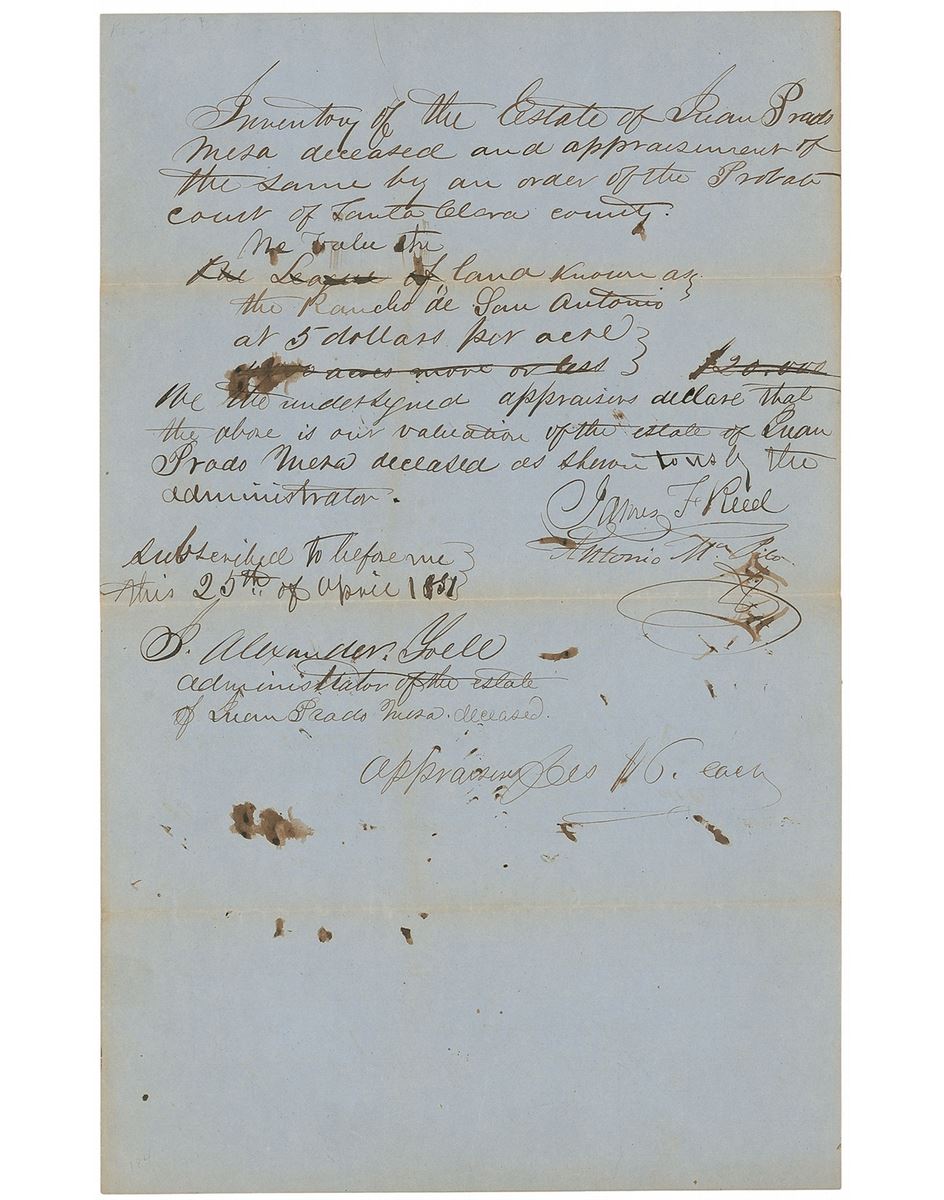 Inventory of the Estate of Juan Prado
Mesa deceased and appraisement of
the same by an order of the Probate
court of Santa Clara county.
We value the
One League of land known as
the Rancho de San Antonio
at 5 dollars per acre
acres more or less $20.000
We the undersigned appraisers declare that
the above is our valuation of the estate of Juan
Prado Mesa deceased as shown to us by the
administrator.
James F Reed
Antonio Ma Pico
subscribed to before me
this 25th of April 1851
J. Alexander. Yoell
administrator of the estate
of Juan Prado Mesa. deceased.
appraisers fees each